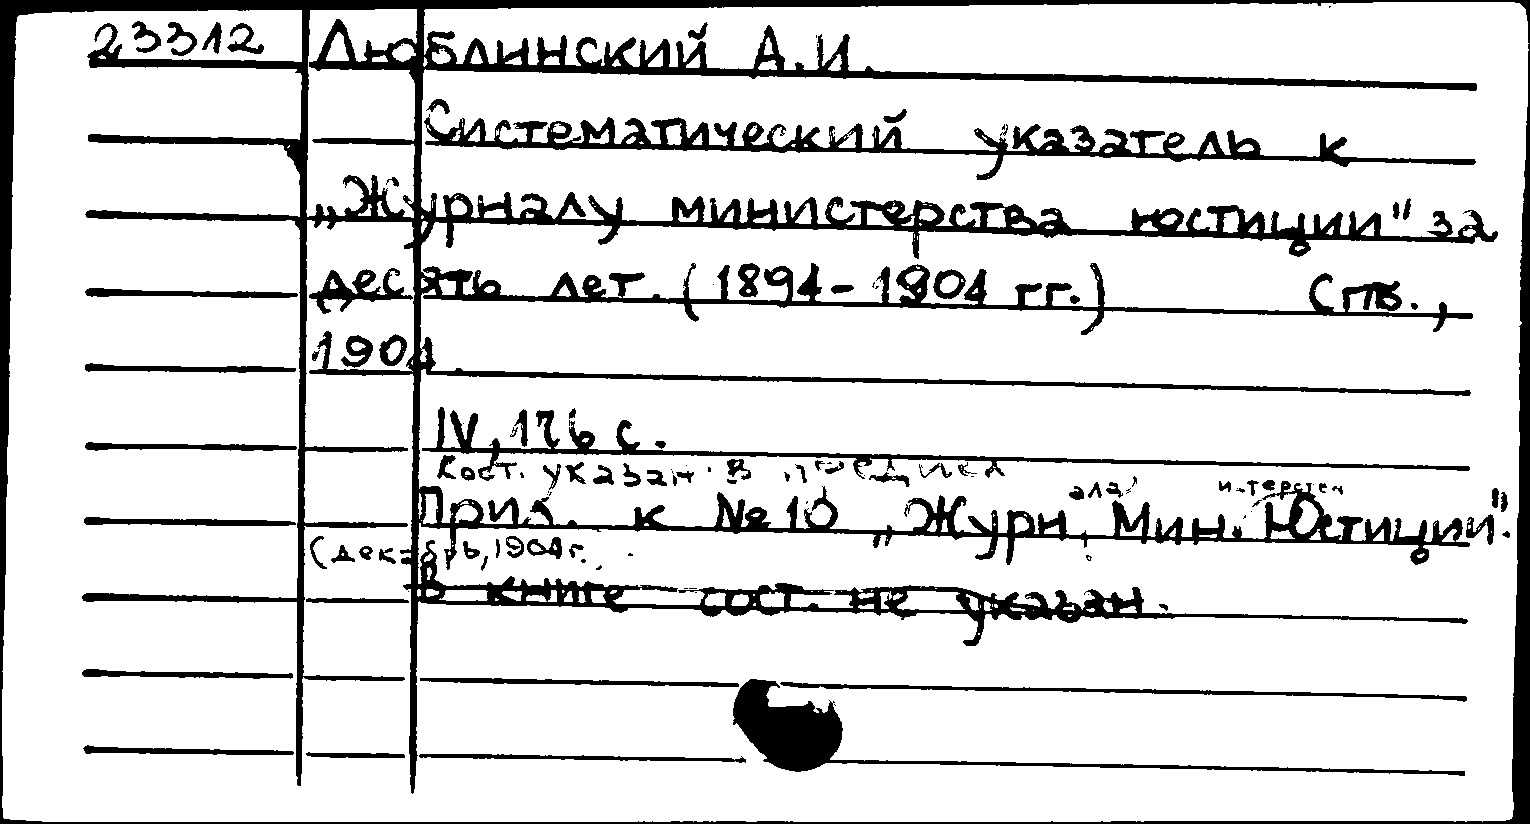 23312 Люблинский А.И.
Систематический указатель к
„Журналу министерства юстиции" за
десять лет. (1894-1904 гг.) Спб.,
1904.
IV, 176 с.
Сост. указан в предисл
ала интерств
Прил. к № 10 „Журн. Мин. Юстиции".
(декабрь, 1904 г.
В книге сост. не указан.